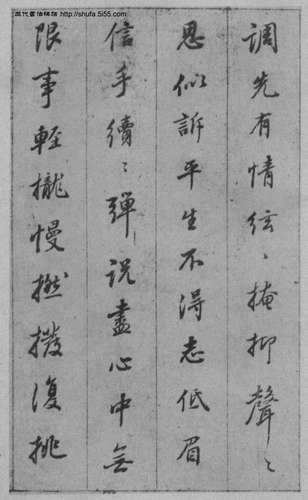 http://shufa.5i55.com
調先有情絃〻掩抑聲〻
思似訴平生不得志低眉
信手續〻彈説盡心中無
限事輕攏慢撚撥復挑